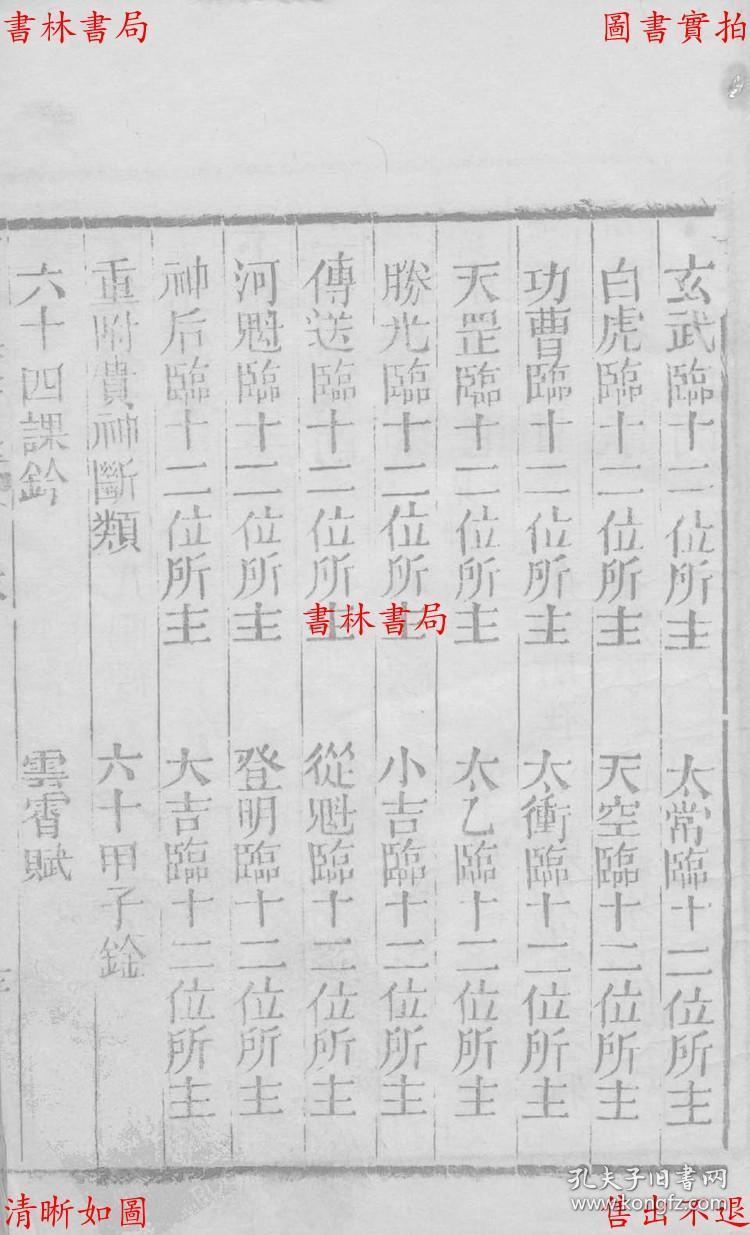 書林書局
圖書實拍
玄武臨十二位所主 太常臨十二位所主
白虎臨十二位所主 天空臨十二位所主
功曹臨十二位所主 太衝臨十二位所主
天罡臨十二位所主 太乙臨十二位所主
勝光臨十二位所主 小吉臨十二位所主
傳送臨十二位所主 從魁臨十二位所主
河魁臨十二位所主 登明臨十二位所主
神后臨十二位所主 大吉臨十二位所主
重附貴神斷類 六十甲子鈐
六十四課鈐 雲霄賦
書林書局
孔夫子旧书网
www.kongfz.com
清晰如圖
售出不退